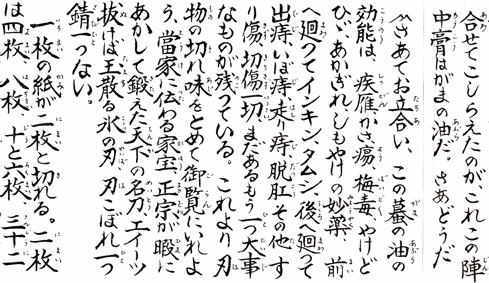 合せてこしらえたのがこれこの陣
中膏はがまの油だ。さあどうだ
〽さあてお立合い、この蟇の油の
効能は、疾雁がさ瘍、梅毒、やけど
ひゞあかぎれしもやけの妙薬、前
へ廻ってインキン、タムシ、後へ廻って
出痔、いぼ痔、走り痔、脱肛その他す
り傷切傷一切まだあるもう一つ大事
なものが残っている。これより刃
物の切れ味をとめて御覧にれよ
う、當家に伝わる家宝正宗が暇に
あかして鍛えた天下の名刀、エイーツ
抜けば玉散る氷の刃刃こぼれ一つ
錆一つない。
一枚の紙が二枚と切れる。二枚
は四枚、八枚、十と六枚、三十二